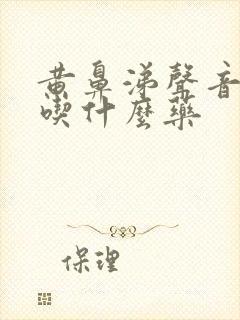 黄鼻涕聲音
喫什麼藥
保理